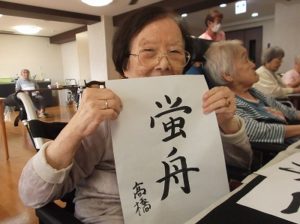 蛍舟
高橋